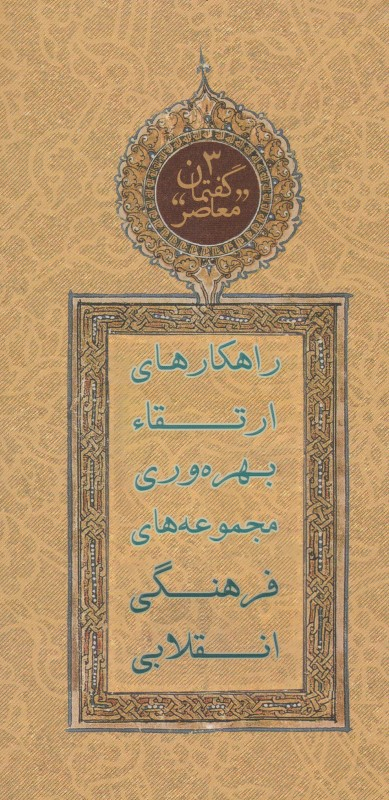 ۳
گفتمان
”معاصر“
راهکارهای
ارتقاء
بهره‌وری
مجموعه‌های
فرهنگی
انقلابی